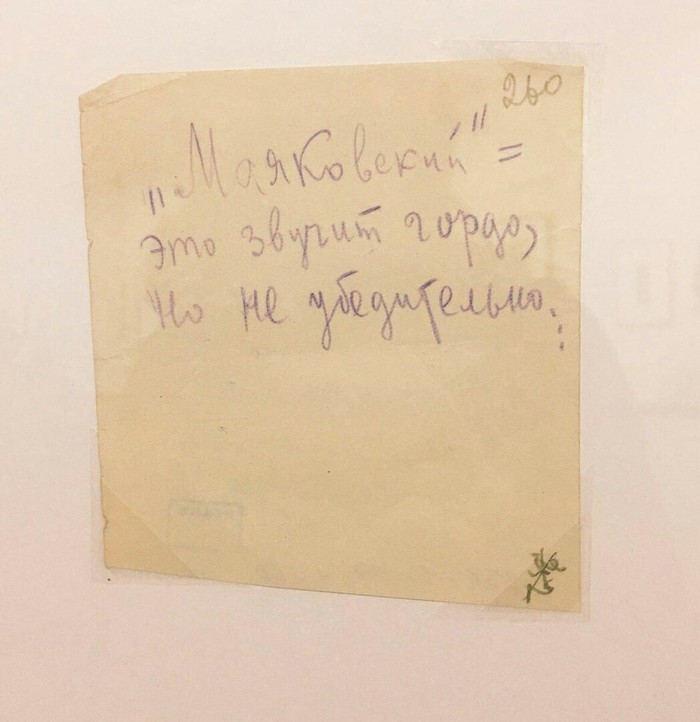 260
„Маяковский" =
это звучит гордо,
но не убедительно.